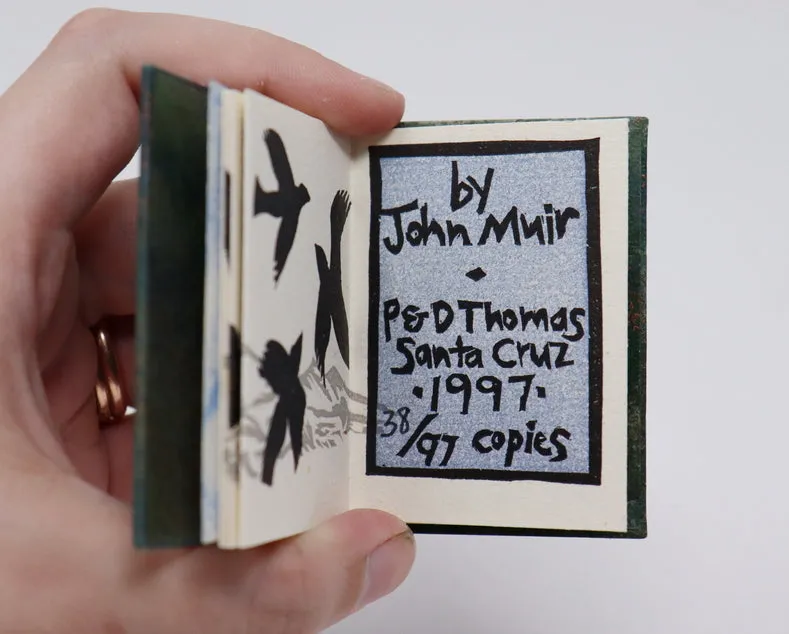 by
John Muir
P&D Thomas
Santa Cruz
·1997·
38/97 copies